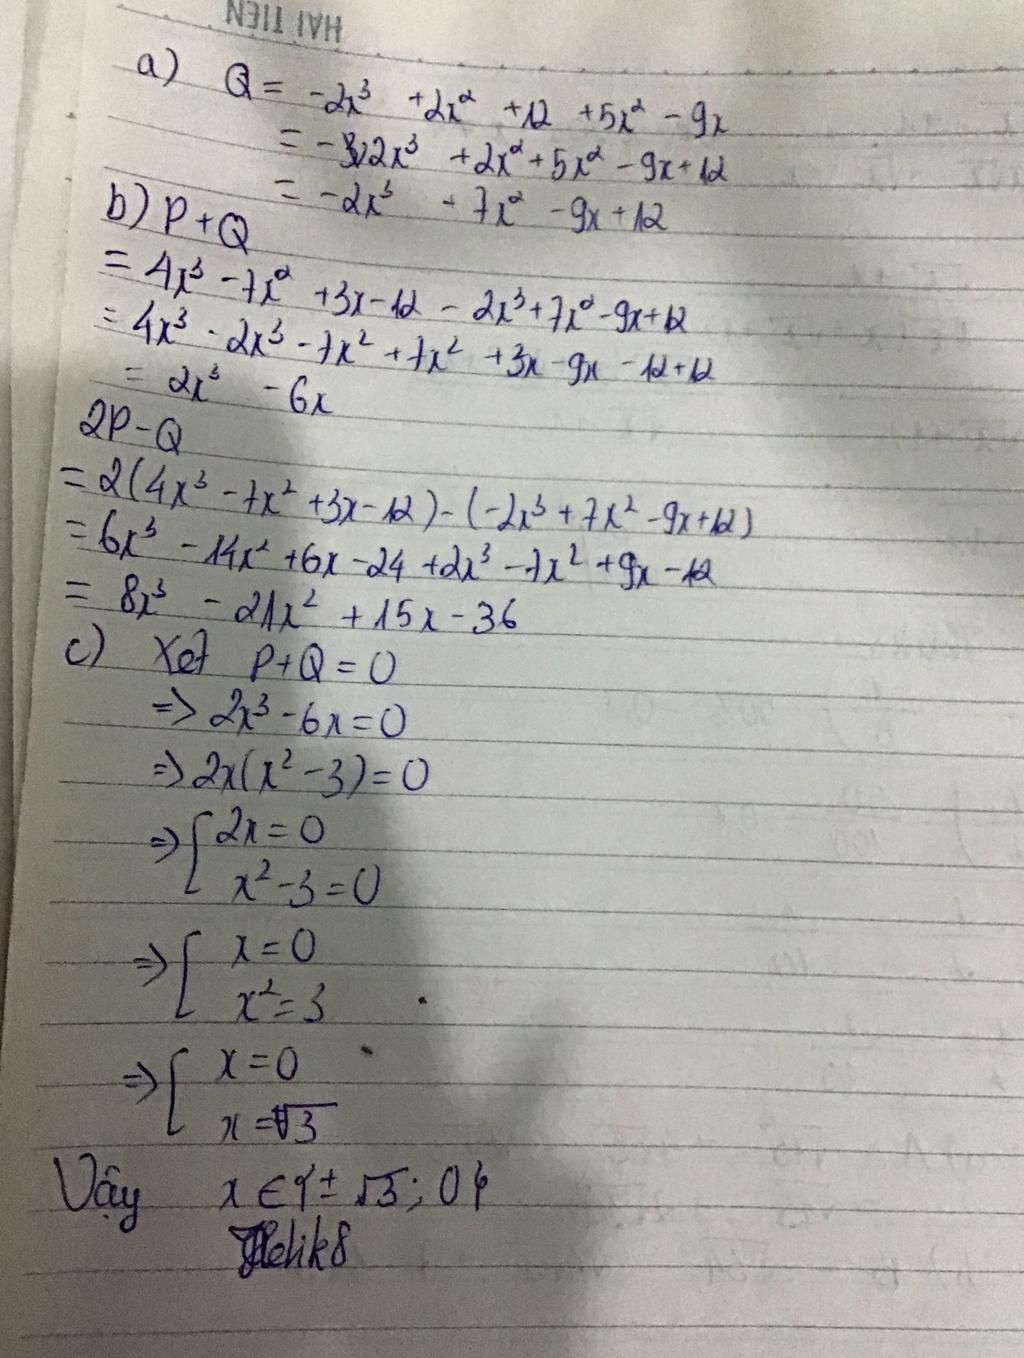 HẢI TIẾN
a) Q = -2x³ +2x² +12 +5x² -9x
= -2x³ +2x²+5x² -9x+12
= -2x³ +7x² -9x+12
b) P+Q
= 4x³ -7x² +3x-12 - 2x³+7x²-9x+12
= 4x³ -2x³ -7x² +7x² +3x -9x -12+12
= 2x³ -6x
2P-Q
=2(4x³ -7x² +3x-12)-(-2x³ +7x² -9x+12)
=6x³ -14x² +6x -24 +2x³ -7x² +9x -12
= 8x³ -21x² +15x-36
c) Xét P+Q=0
=> 2x³-6x=0
=> 2x(x²-3)=0
=> [ 2x=0
x²-3=0
=> [ x=0
x²=3
=> [ x=0
x=±√3
Vậy x∈{±√3;0}